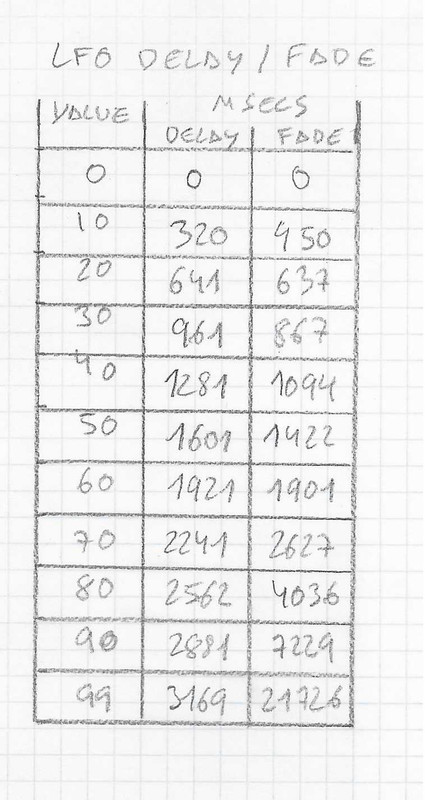 LFO DELAY / FADE
VALUE MSECS
DELAY FADE
0 0 0
10 320 450
20 641 637
30 961 867
40 1281 1094
50 1601 1422
60 1921 1901
70 2241 2627
80 2562 4036
90 2881 7229
99 3169 21726